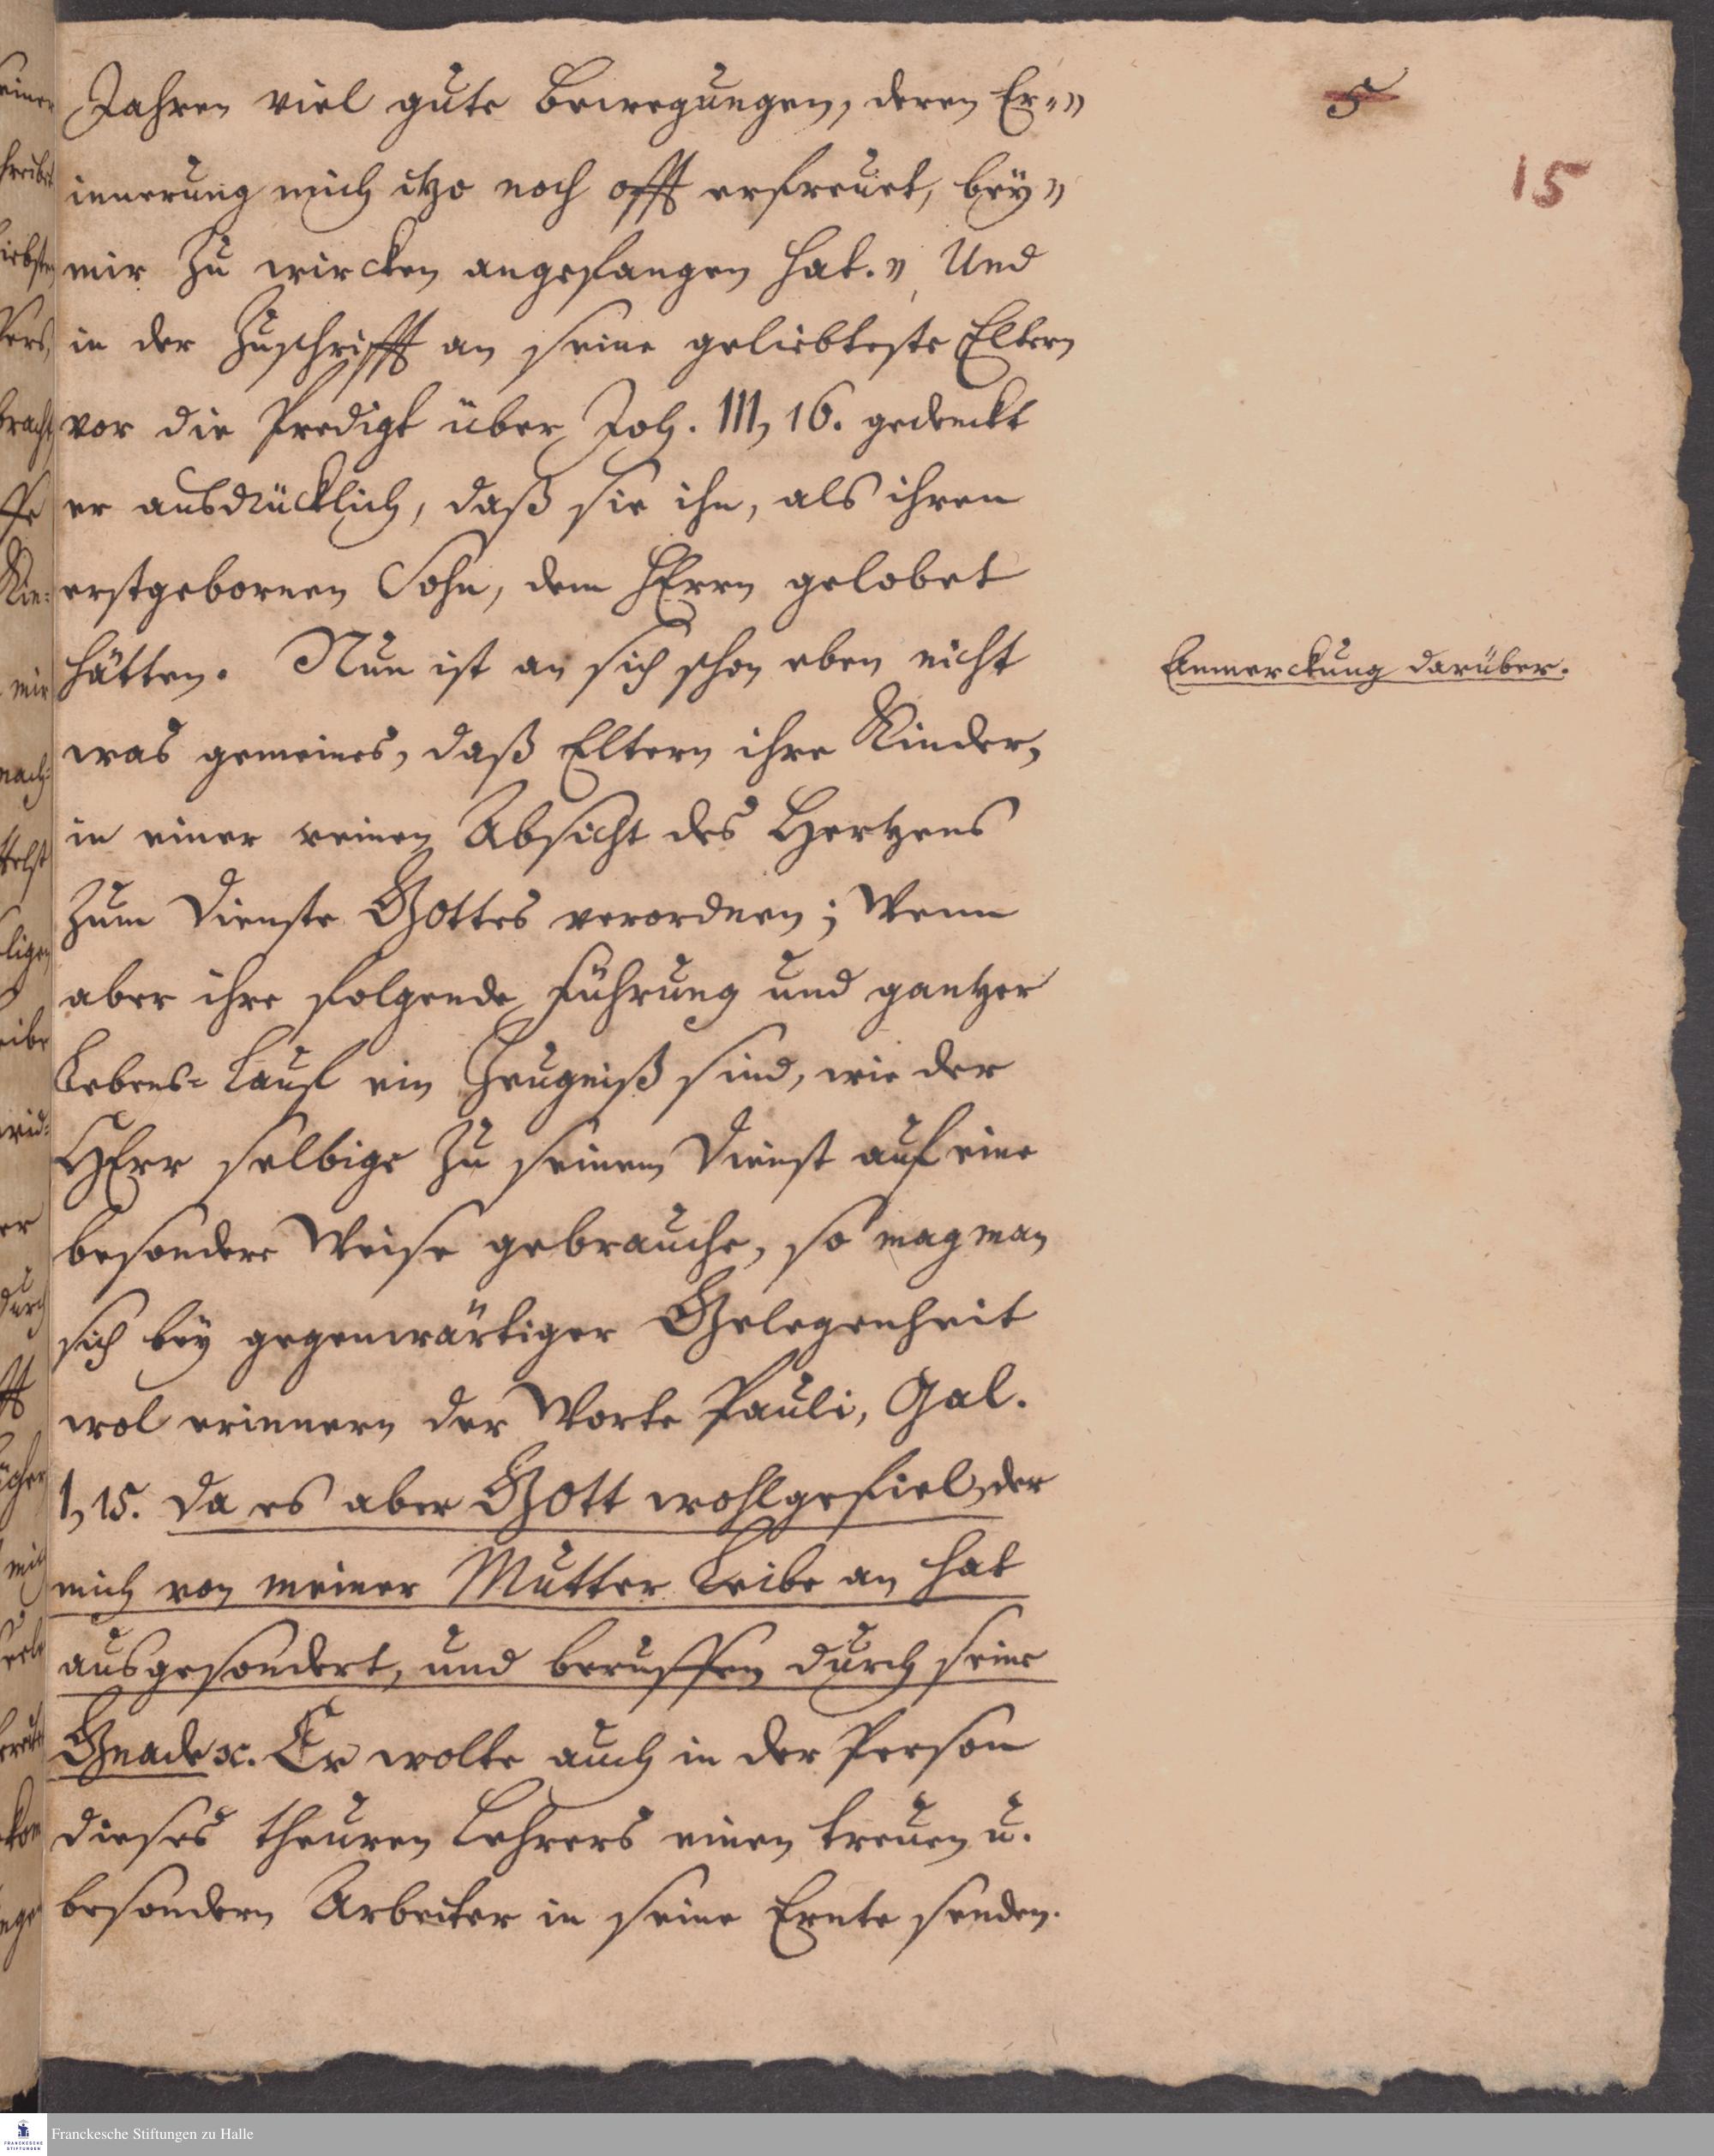 Jahren viel gute Bewegungen, deren Er„„
innerung mich itzo noch offt erfreuet, bey„
mir zu wircken angefangen hat.„ Und
in der Zuschrifft an seine geliebteste Eltern
vor die Predigt über Joh. III, 16. gedenckt
er ausdrücklich, daß sie ihn, als ihren
erstgebornen Sohn, dem HErrn gelobet
hätten. Nun ist an sich schon eben nicht
was gemeines, daß Eltern ihre Kinder,
in einer reinen Absicht des Hertzens
zum Dienste GOttes verordnen; Wenn
aber ihre folgende Führung und gantzer
Lebens-Lauf ein Zeugniß sind, wie der
HErr selbige zu seinem Dienst auf eine
besondere Weise gebrauche, so mag man
sich bey gegenwärtiger Gelegenheit
wol erinnern der Worte Pauli, Gal.
1, 15. Da es aber GOtt wohlgefiel, der
mich von meiner Mutter Leibe an hat
ausgesondert, und beruffen durch seine
Gnade ꝛc. Er wolte auch in der Person
dieses theuren Lehrers einen treuen u.
besondern Arbeiter in seine Ernte senden.
5
15
Anmerckung darüber.
Franckesche Stiftungen zu Halle